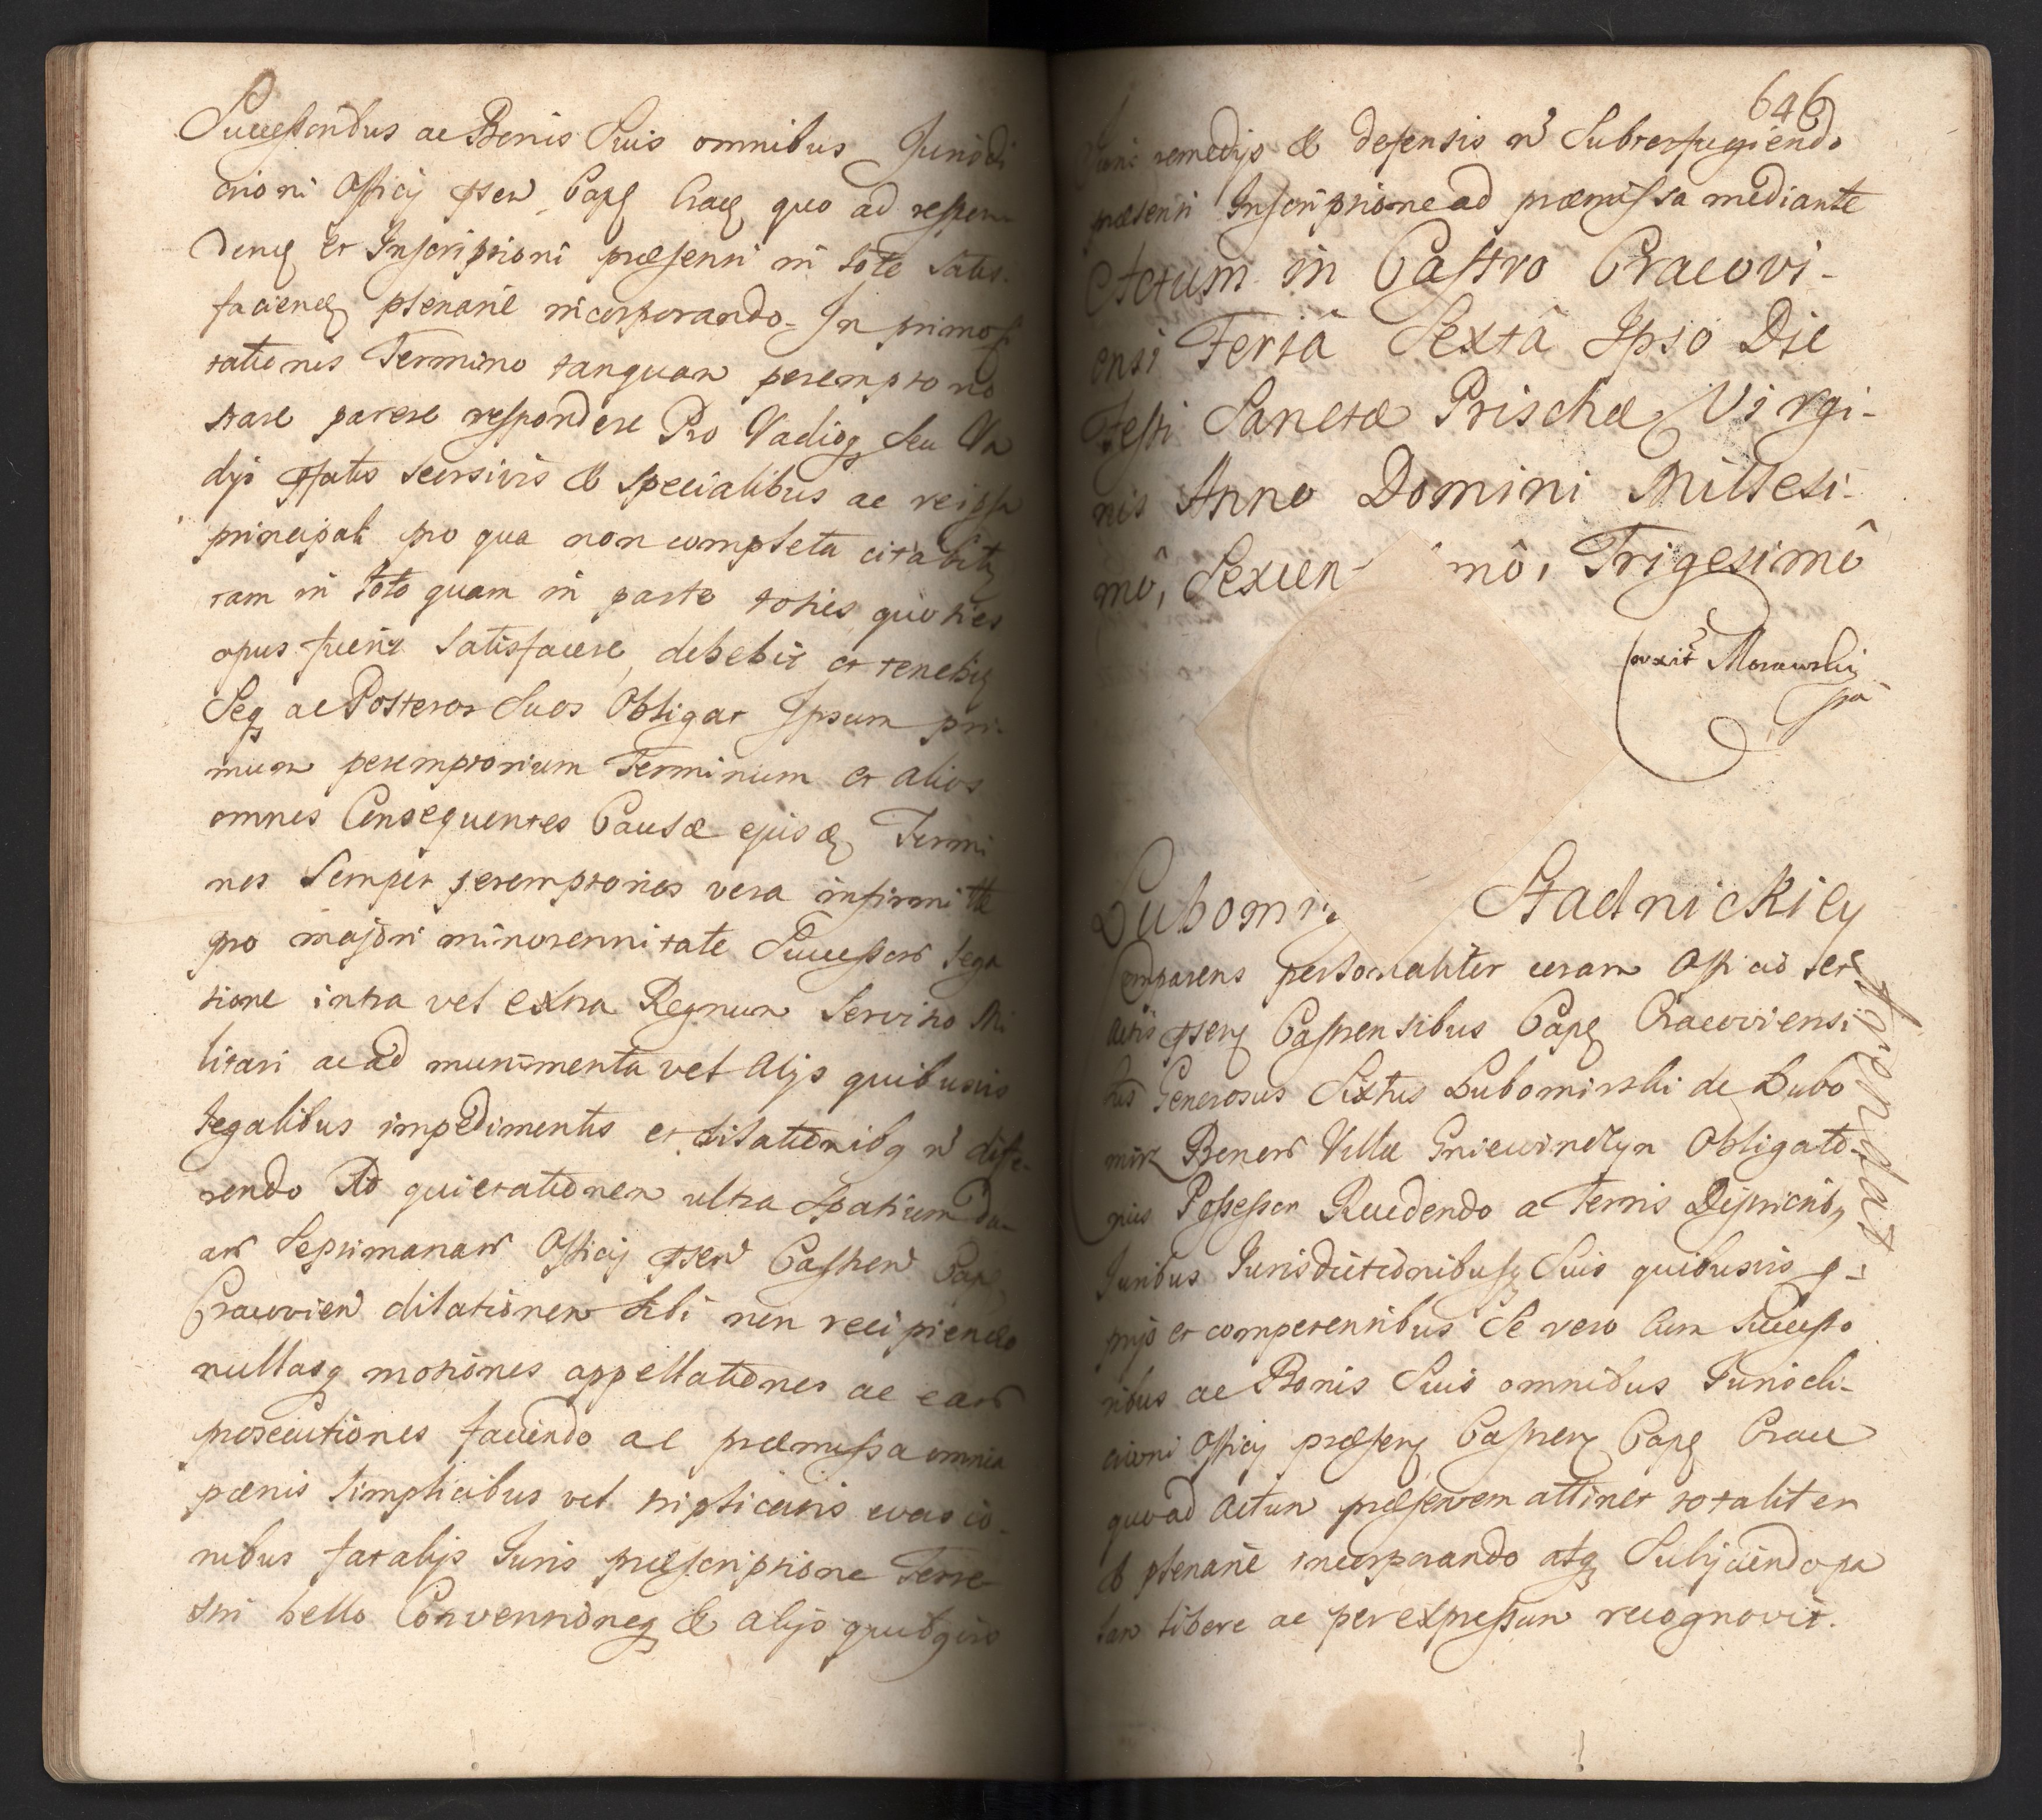 Successoribus ac Bonis Suis omnibus Jurisdi
ctioni Officij psen Capp Cracq quo ad respon
denq et Inscriptioni præsenti in toto satis-
faciendq plenarie incorporando. In primo
tationis Termino tanquam peremptorio
stare parere respondere Pro Vadioq seu Va
dijs pfatis seorsivis & specialibus ac re ipsa
principali pro qua non completa citabitq
tam in toto quam in parte toties quoties
opus fuerit Satisfacere, debebit et tenebiq
Seq ac Posteros Suos Obligat Ipsum pri-
mum peremptorium Terminum et alios
omnes Consequentes Causæ ejusdq Termi
nos Semper peremptorios vera infirmitte
pro majori minorennitate Successorũ lega
tione intra vel extra Regnum Servitio Mi
litari ac ad munimenta vel alijs quibusvis
legalibus impedimentis et dilationibq ñ diffe-
rendo Ad quietationem ultra Spatium du
arũ Septimanarũ Officij psen Castren Capp
Cracovien dilationem Sibi non recipiendo
nullasq motiones appellationes ac earũ
prosecutiones faciendo ac præmissa omnia
pœnis simplicibus vel triplicibus evasio-
nibus fatalijs Juris præscriptione Terre-
stri bello Conventioneq & alijs quibqvis
646
Juris remedijs & defensis ñ Subterfugiendo
præsenti Inscriptione ad præmissa mediante
Actum in Castro Cracovi-
ensi Feriâ Sextâ Ipso Die
Festi Sanctæ Priscæ Virgi-
nis Anno Domini Millesi-
mô, Sexcen mô, Trigesimô
Morawski
Lubomir Stadnickiey
Comparens personaliter coram Officio et
actis psenq Castrensibus Capp Cracoviensi
bus Generosus Sixtus Lubomirski de Lubo
mirz Bonorũ Villæ Gniewincyn Obligato-
rius Possessor Recedendo a Terris Districtibq
Juribus Jurisdictionibusq Suis quibusvis p-
prijs et competentibus Se vero Cum Successo
ribus ac Bonis Suis omnibus Jurisdi-
ctioni Officij præsenq Castrenq Capp Crac
quoad Actum præsentem attinet totaliter
& plenarie incorporando atq Subijciendo pa
lam libere ac per expressum recognovit.